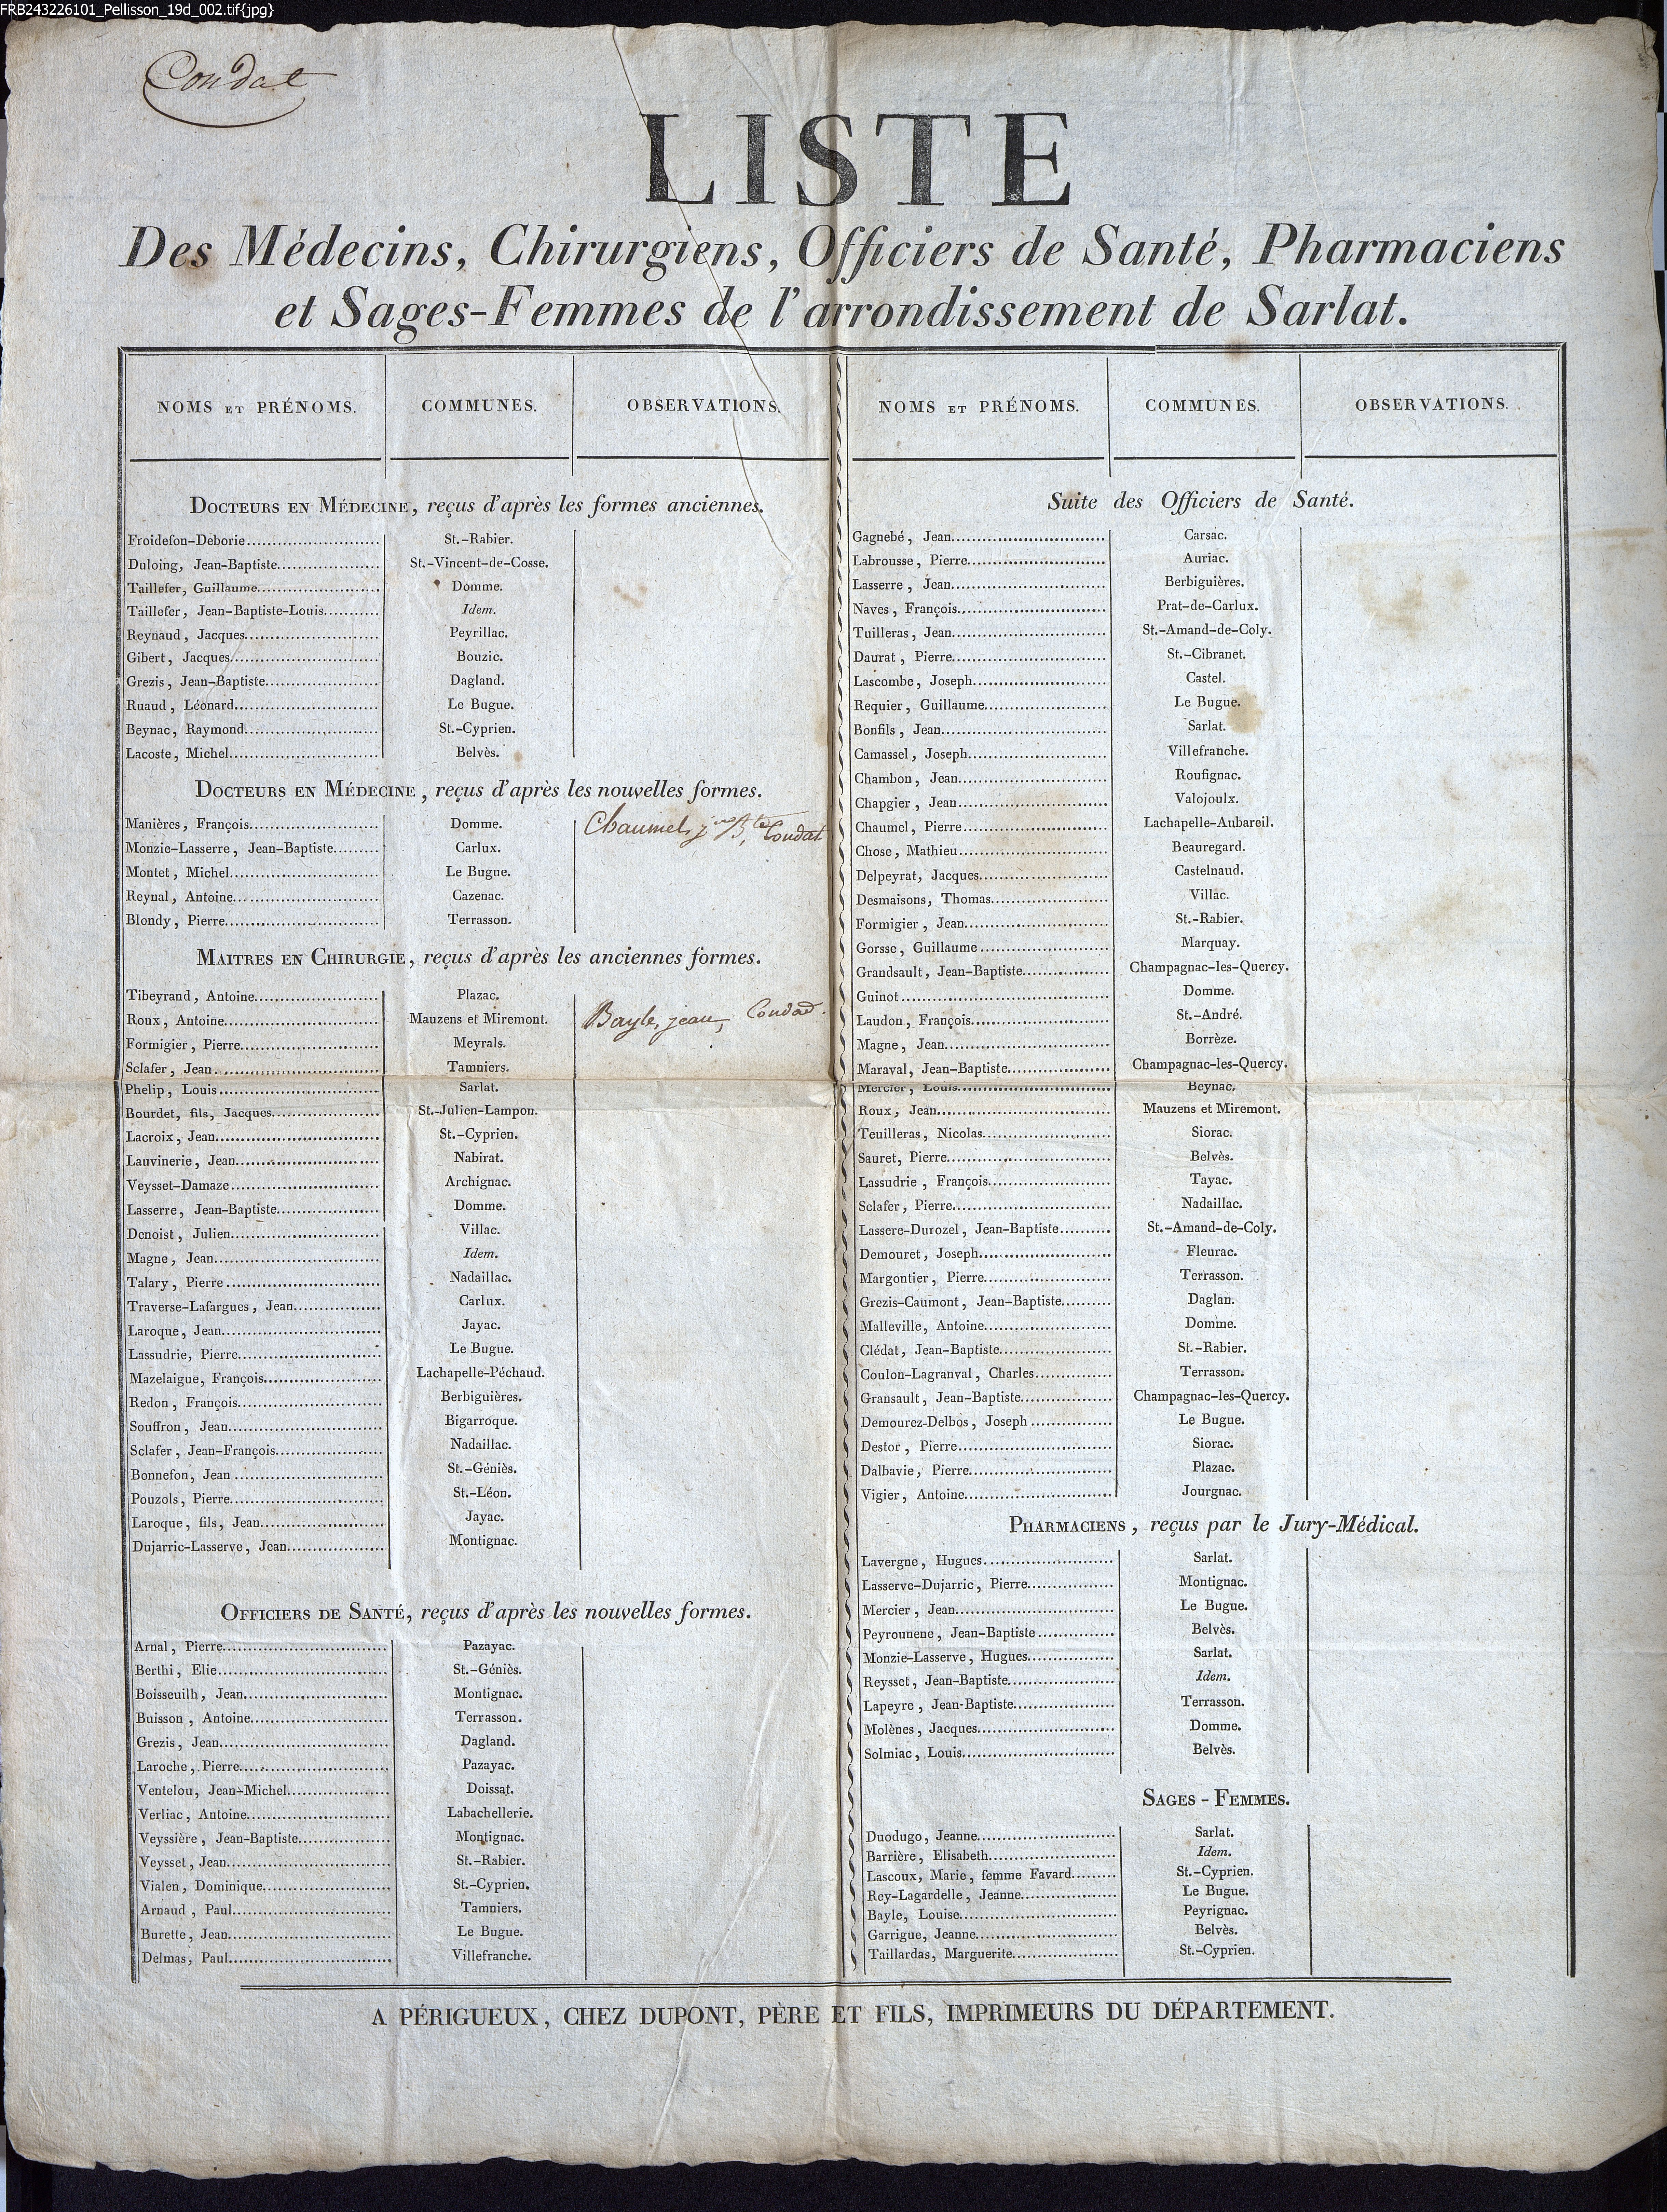 FRB243226101_Pellisson_19d_002.tif{jpg}
Condat
LISTE
Des Médecins, Chirurgiens, Officiers de Santé, Pharmaciens
et Sages-Femmes de l'arrondissement de Sarlat.
NOMS ET PRÉNOMS. COMMUNES. OBSERVATIONS.
DOCTEURS EN MÉDECINE, reçus d'après les formes anciennes.
Froidefon-Deborie St.-Rabier.
Duloing, Jean-Baptiste St.-Vincent-de-Cosse.
Taillefer, Guillaume Domme.
Taillefer, Jean-Baptiste-Louis Idem.
Reynaud, Jacques Peyrillac.
Gibert, Jacques Bouzic.
Grezis, Jean-Baptiste Dagland.
Ruaud, Léonard Le Bugue.
Beynac, Raymond St.-Cyprien.
Lacoste, Michel Belvès.
DOCTEURS EN MÉDECINE, reçus d'après les nouvelles formes.
Manières, François Domme. Chaumel, Condat
Monzie-Lasserre, Jean-Baptiste Carlux.
Montet, Michel Le Bugue.
Reynal, Antoine Cazenac.
Blondy, Pierre Terrasson.
MAITRES EN CHIRURGIE, reçus d'après les anciennes formes.
Tibeyrand, Antoine Plazac.
Roux, Antoine Mauzens et Miremont. Bayle, jean, Condad.
Formigier, Pierre Meyrals.
Sclafer, Jean Tamniers.
Phelip, Louis Sarlat.
Bourdet, fils, Jacques St.-Julien-Lampon.
Lacroix, Jean St.-Cyprien.
Lauvinerie, Jean Nabirat.
Veysset-Damaze Archignac.
Lasserre, Jean-Baptiste Domme.
Denoist, Julien Villac.
Magne, Jean Idem.
Talary, Pierre Nadaillac.
Traverse-Lafargues, Jean Carlux.
Laroque, Jean Jayac.
Lassudrie, Pierre Le Bugue.
Mazelaigue, François Lachapelle-Péchaud.
Redon, François Berbiguières.
Souffron, Jean Bigarroque.
Sclafer, Jean-François Nadaillac.
Bonnefon, Jean St.-Géniès.
Pouzols, Pierre St.-Léon.
Laroque, fils, Jean Jayac.
Dujarric-Lasserve, Jean Montignac.
OFFICIERS DE SANTÉ, reçus d'après les nouvelles formes.
Arnal, Pierre Pazayac.
Berthi, Elie St.-Géniès.
Boisseuilh, Jean Montignac.
Buisson, Antoine Terrasson.
Grezis, Jean Dagland.
Laroche, Pierre Pazayac.
Ventelou, Jean-Michel Doissat.
Verliac, Antoine Labachellerie.
Veyssière, Jean-Baptiste Montignac.
Veysset, Jean St.-Rabier.
Vialen, Dominique St.-Cyprien.
Arnaud, Paul Tamniers.
Burette, Jean Le Bugue.
Delmas, Paul Villefranche.
NOMS ET PRÉNOMS. COMMUNES. OBSERVATIONS.
Suite des Officiers de Santé.
Gagnebé, Jean Carsac.
Labrousse, Pierre Auriac.
Lasserre, Jean Berbiguières.
Naves, François Prat-de-Carlux.
Tuilleras, Jean St.-Amand-de-Coly.
Daurat, Pierre St.-Cibranet.
Lascombe, Joseph Castel.
Requier, Guillaume Le Bugue.
Bonfils, Jean Sarlat.
Camassel, Joseph Villefranche.
Chambon, Jean Roufignac.
Chapgier, Jean Valojoulx.
Chaumel, Pierre Lachapelle-Aubareil.
Chose, Mathieu Beauregard.
Delpeyrat, Jacques Castelnaud.
Desmaisons, Thomas Villac.
Formigier, Jean St.-Rabier.
Gorsse, Guillaume Marquay.
Grandsault, Jean-Baptiste Champagnac-les-Quercy.
Guinot Domme.
Laudon, François St.-André.
Magne, Jean Borrèze.
Maraval, Jean-Baptiste Champagnac-les-Quercy.
Mercier, Louis Beynac.
Roux, Jean Mauzens et Miremont.
Teuilleras, Nicolas Siorac.
Sauret, Pierre Belvès.
Lassudrie, François Tayac.
Sclafer, Pierre Nadaillac.
Lassere-Durozel, Jean-Baptiste St.-Amand-de-Coly.
Demouret, Joseph Fleurac.
Margontier, Pierre Terrasson.
Grezis-Caumont, Jean-Baptiste Daglan.
Malleville, Antoine Domme.
Clédat, Jean-Baptiste St.-Rabier.
Coulon-Lagranval, Charles Terrasson.
Gransault, Jean-Baptiste Champagnac-les-Quercy.
Demourez-Delbos, Joseph Le Bugue.
Destor, Pierre Siorac.
Dalbavie, Pierre Plazac.
Vigier, Antoine Jourgnac.
PHARMACIENS, reçus par le Jury-Médical.
Lavergne, Hugues Sarlat.
Lasserve-Dujarric, Pierre Montignac.
Mercier, Jean Le Bugue.
Peyrounene, Jean-Baptiste Belvès.
Monzie-Lasserve, Hugues Sarlat.
Reysset, Jean-Baptiste Idem.
Lapeyre, Jean-Baptiste Terrasson.
Molènes, Jacques Domme.
Solmiac, Louis Belvès.
SAGES-FEMMES.
Duodugo, Jeanne Sarlat.
Barrière, Elisabeth Idem.
Lascoux, Marie, femme Favard St.-Cyprien.
Rey-Lagardelle, Jeanne Le Bugue.
Bayle, Louise Peyrignac.
Garrigue, Jeanne Belvès.
Taillardas, Marguerite St.-Cyprien.
A PÉRIGUEUX, CHEZ DUPONT, PÈRE ET FILS, IMPRIMEURS DU DÉPARTEMENT.